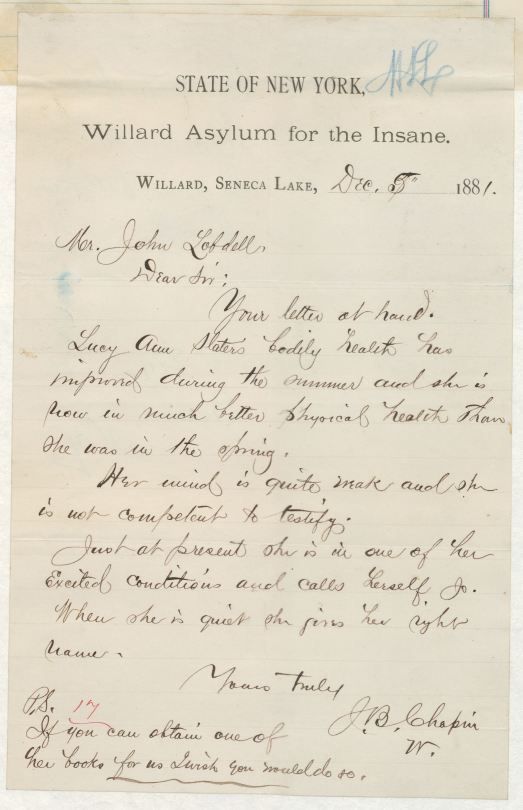 STATE OF NEW YORK,
Willard Asylum for the Insane.
WILLARD, SENECA LAKE, Dec. 5" 1881.
Mr. John Lobdell,
Dear Sir:
Your letter at hand.
Lucy Ann Slaters bodily health has
improved during the summer and she is
now in much better physical health than
she was in the spring.
Her mind is quite weak and she
is not competent to testify.
Just at present she is in one of her
Excited conditions and calls herself Jo.
When she is quiet she gives her right
name.
Yours Truly
J. B. Chapin
W.
P.S. 17
If you can obtain one of
her books for us I wish you would do so.